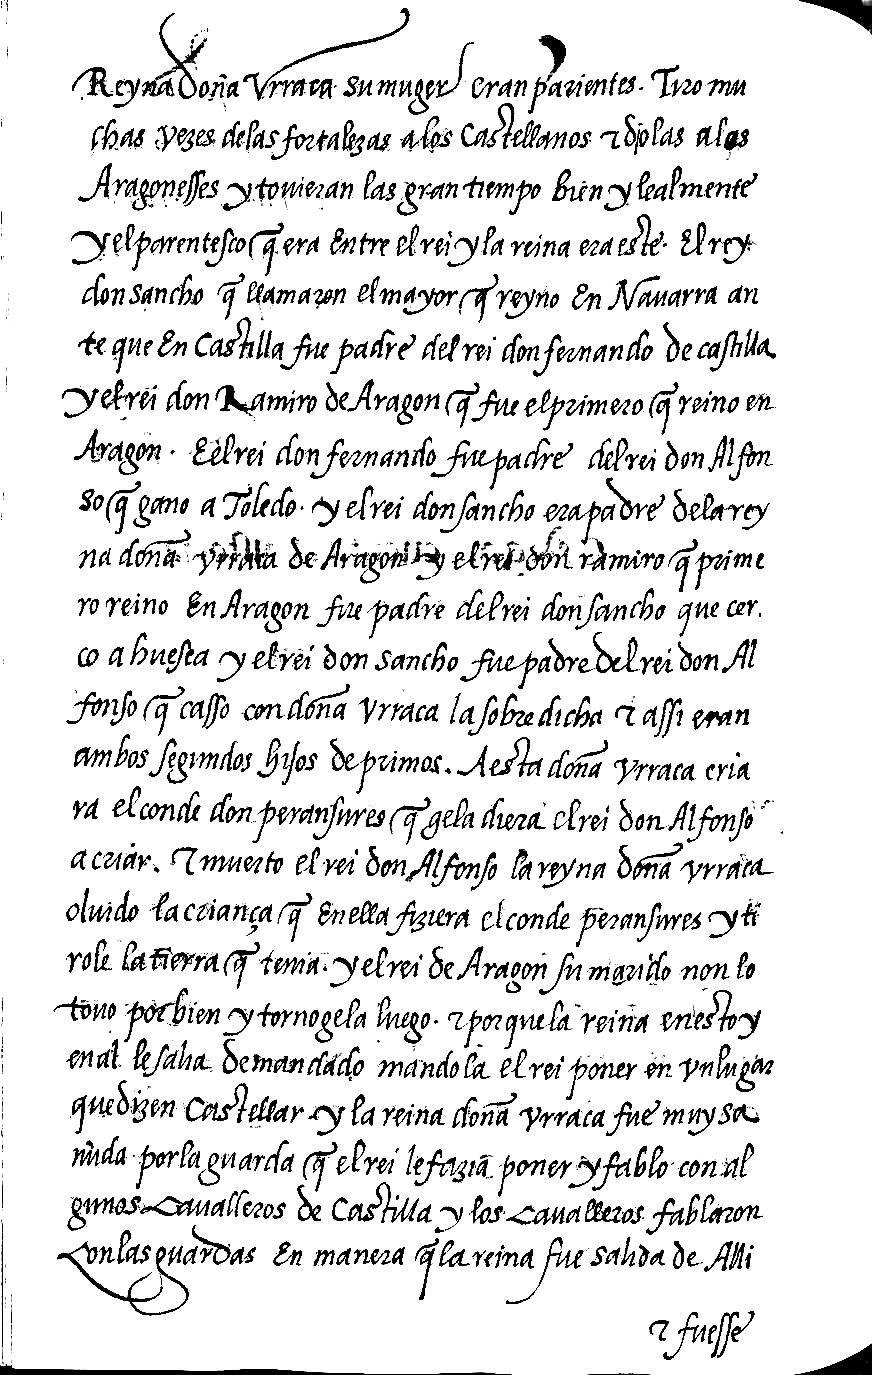 Reyna Doña Vrraca su muger eran parientes. Tiro mu
chas vezes delas fortalezas alos Castellanos τ diolas alos
Aragonesses y touieran las gran tiempo bien y lealmente
y el parentesco q̃ era Entre el rei y la reina era este. El rey
don sancho q̃ llamaron el mayor q̃ reyno En Nauarra an
te que En Castilla fue padre del rei don fernando de castilla
y el rei don Ramiro de Aragon q̃ fue el primero q̃ reino en
Aragon. E el rei don fernando fue padre del rei don Alfon
so q̃ gano a Toledo. y el rei don sancho era padre dela rey
na doña vrraca de Aragon y el rei don ramiro q̃ prime
ro reino En Aragon fue padre del rei don sancho que cer.
co a huesca y el rei don sancho fue padre del rei don Al
fonso q̃ casso con doña vrraca la sobre dicha τ assi eran
ambos segundos hijos de primos. A esta doña vrraca cria
ra el conde don peransures q̃ gela diera el rei don Alfonso
a criar. τ muerto el rei don Alfonso la reyna doña vrraca
oluido la criança q̃ En ella fiziera el conde peransures y ti
role la tierra q̃ tenia. y el rei de Aragon su marido non lo
touo por bien y tornogela luego. τ por que la reina en esto y
en al le salia de mandado mandola el rei poner en vn lugar
que dizen Castellar y la reina doña vrraca fue muy sa
ñuda por la guarda q̃ el rei le fazia poner y fablo con al
gunos Caualleros de Castilla y los Caualleros fablaron
Con las guardas En manera q̃ la reina fue salida de Alli
τ fuesse